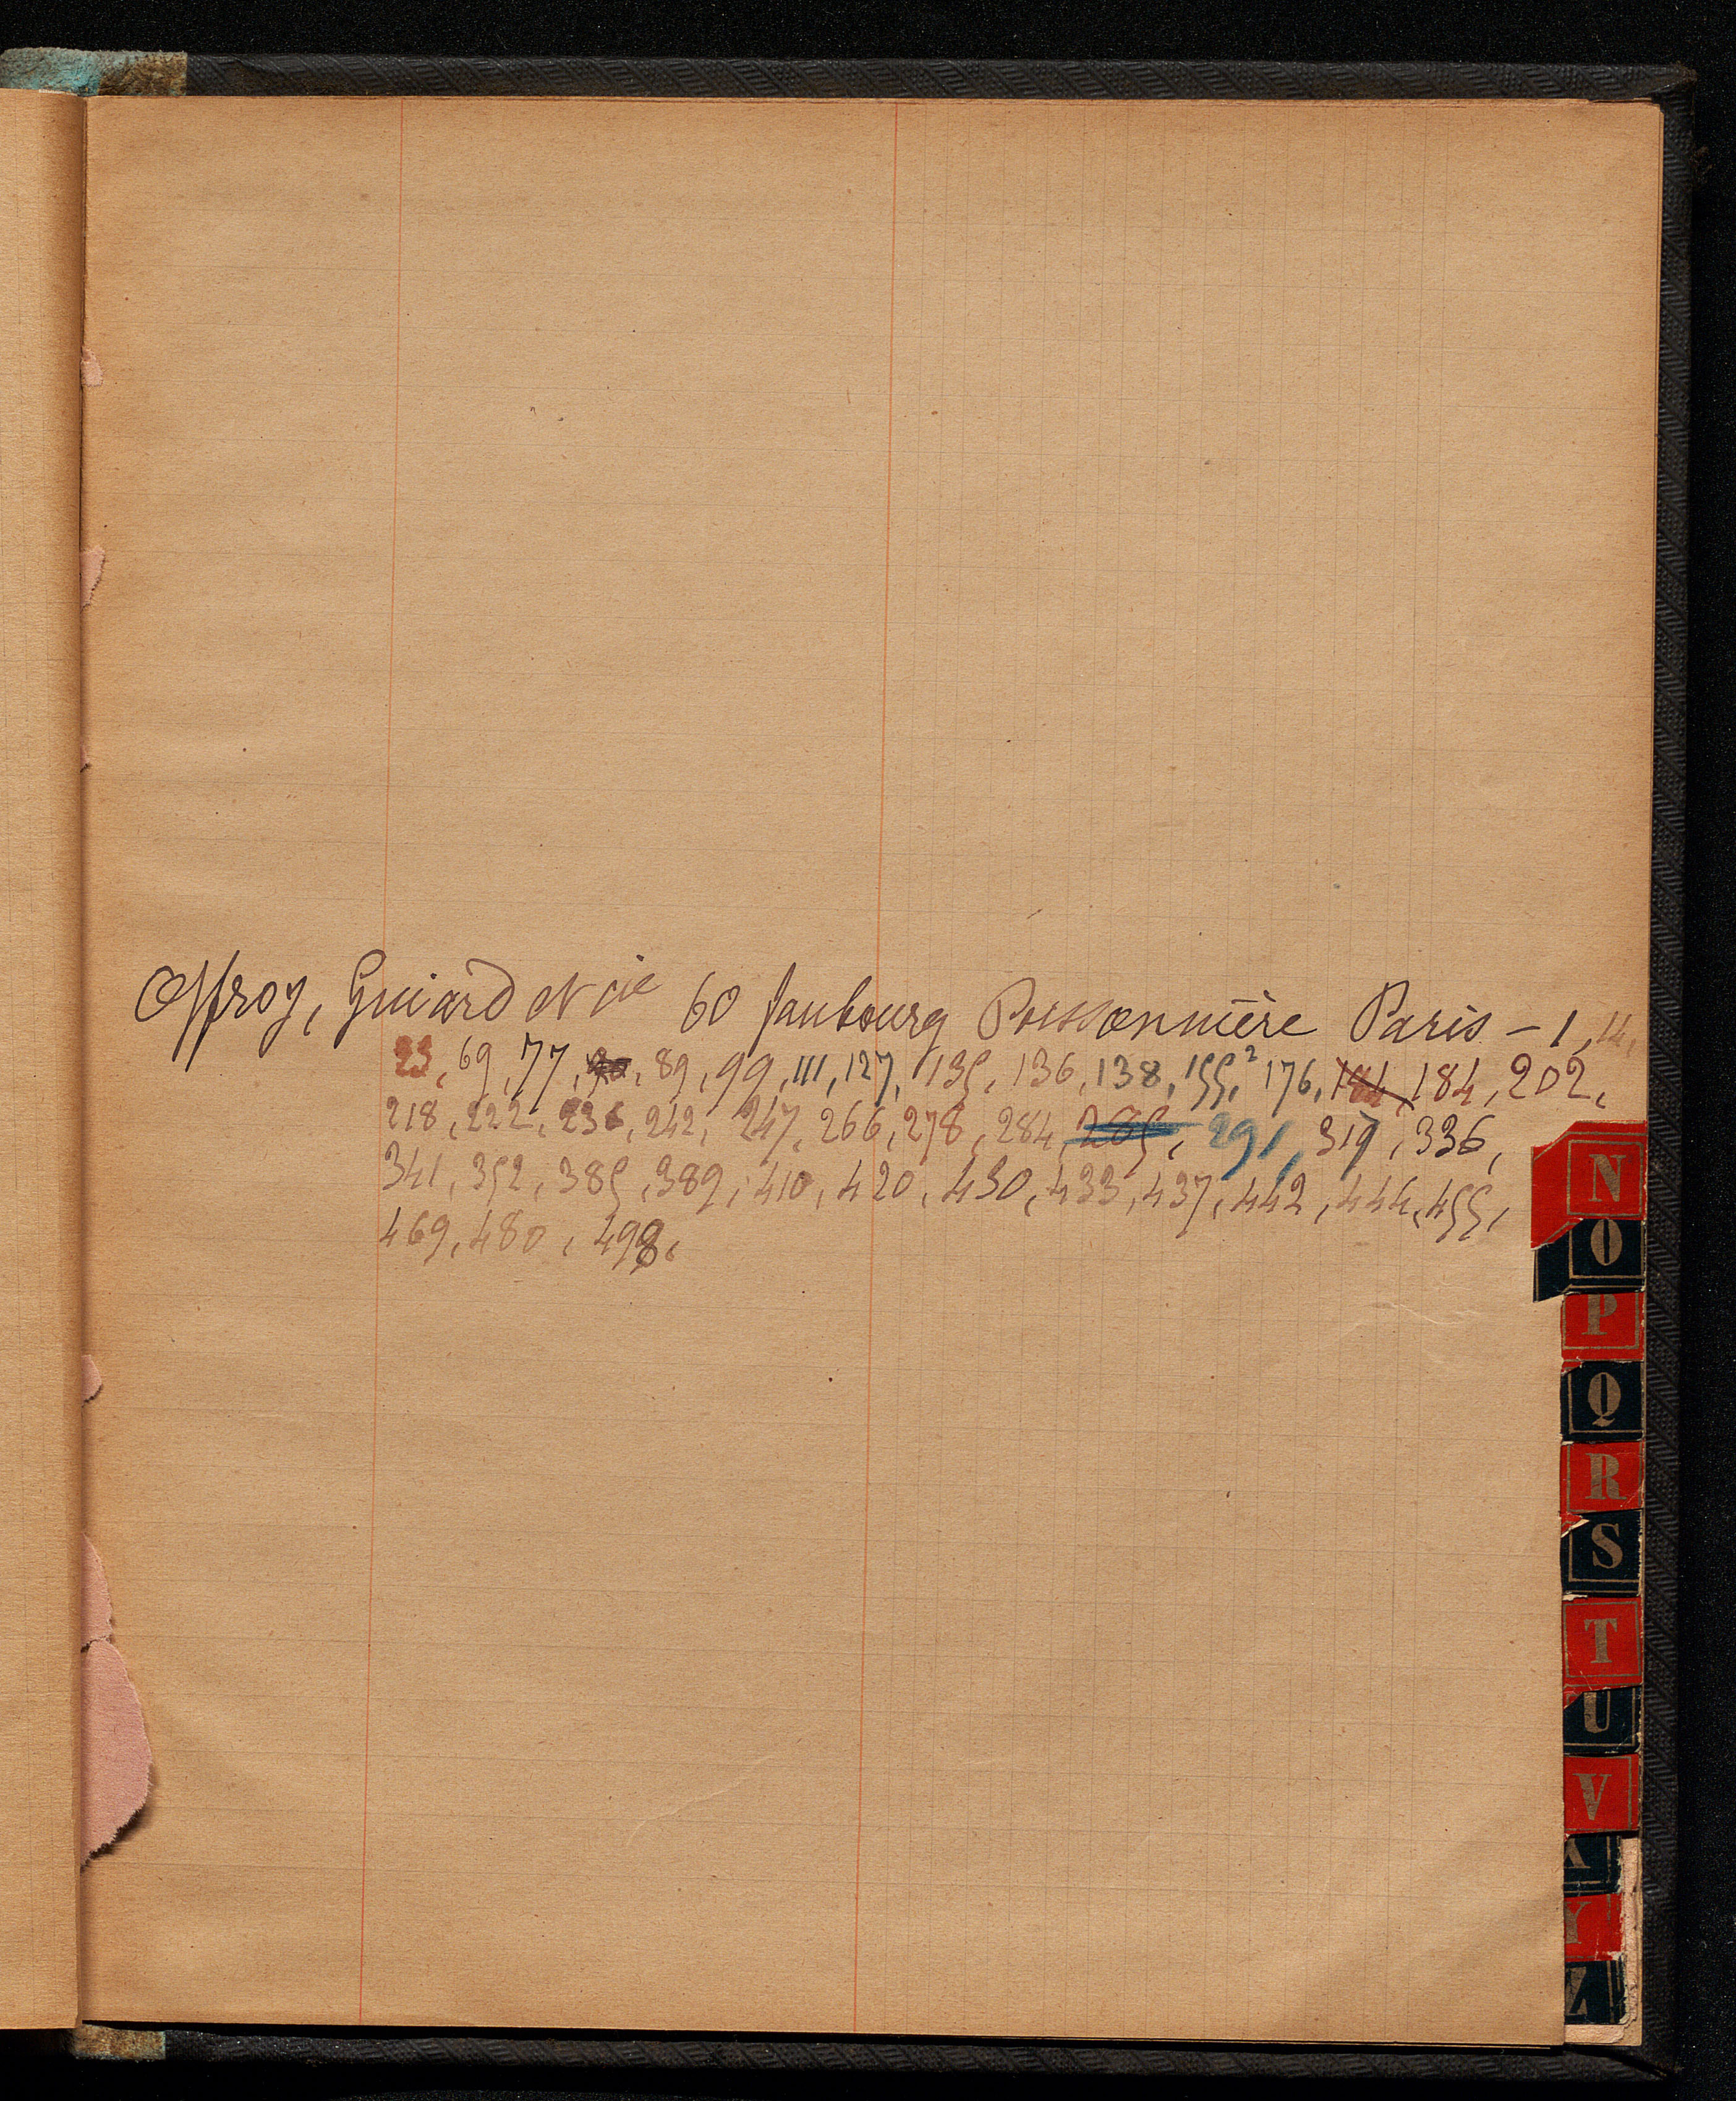 Offroy, Guiard et cie 60 faubourg Poissonnière Paris – 1, 14,
23, 69, 77, 89, 99, 111, 127, 135, 136, 138, 155,² 176, 184, 184, 202,
218, 222, 236, 242, 247, 266, 278, 284, 285, 291, 319, 336,
341, 352, 385, 389, 410, 420, 430, 433, 437, 442, 444, 455,
469, 480, 498,
N
O
P
Q
R
S
T
U
V
X
Y
Z